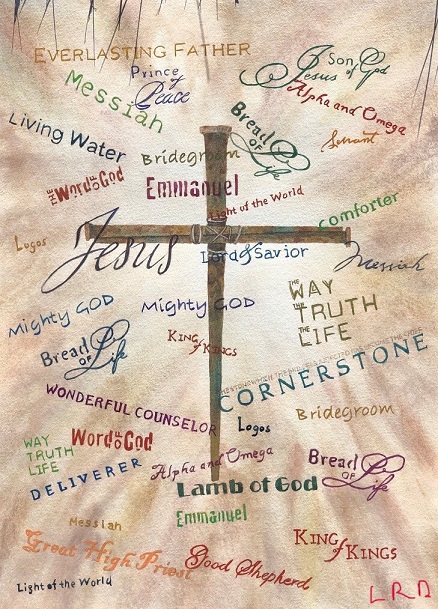 EVERLASTING FATHER
Prince
of
Peace
Son
of God
Jesus
Messiah
Alpha and Omega
Living Water
Bread
OF Life
Servant
Bridegroom
THE Word OF God
Emmanuel
Light of the World
Comforter
Logos
Jesus
Lord & Savior
Messiah
Mighty GOD
Mighty GOD
THE WAY
THE TRUTH
THE LIFE
Bread
OF Life
KING
of KINGS
CORNERSTONE
WONDERFUL COUNSELOR
Logos
Bridegroom
WAY
TRUTH
LIFE
Word OF God
Alpha and Omega
Bread
OF Life
DELIVERER
Lamb of God
Messiah
Emmanuel
Great High Priest
KING
of KINGS
Good Shepherd
Light of the World
LRD